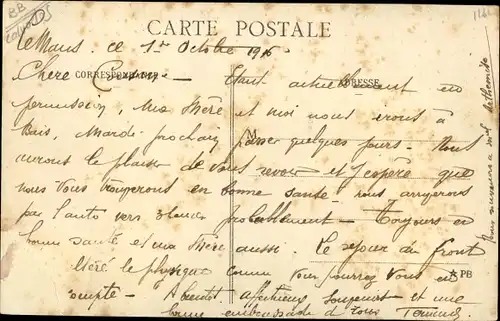 CARTE POSTALE
le Mans, ce 1er Octobre 1916
CORRESPONDANCE
ADRESSE
Chère Cousine - Etant actuellement en
permission, Ma Mère et moi nous irons à
M
Bais, Mardi prochain passer quelques jours - Nous
aurons le plaisir de vous revoir et j'espère que
nous vous trouverons en bonne santé - nous arriverons
par l'auto vers probablement - Toujours en
bonne santé et ma Mère aussi. Le séjour du front
altéré le physique comme vous pourrez vous en
PB
compte - A bientôt affectueux et une
bonne embrassade de tous